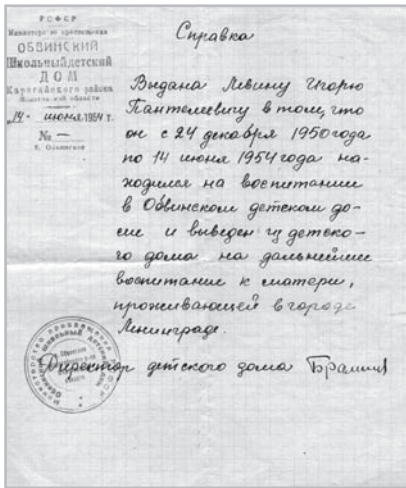 РСФСР
Министерство просвещения
ОБВИНСКИЙ
Школьный детский
ДОМ
Карагайского района
Молотовской области
„14" июня 1954 г.
№ —
с. Обвинское
Справка
Выдана Левину Игорю
Пантелеевичу в том, что
он с 24 декабря 1950 года
по 14 июня 1954 года на-
ходился на воспитании
в Обвинском детском до-
ме и выведен из детско-
го дома на дальнейшее
воспитание к матери,
проживающей в городе
Ленинграде.
Директор детского дома